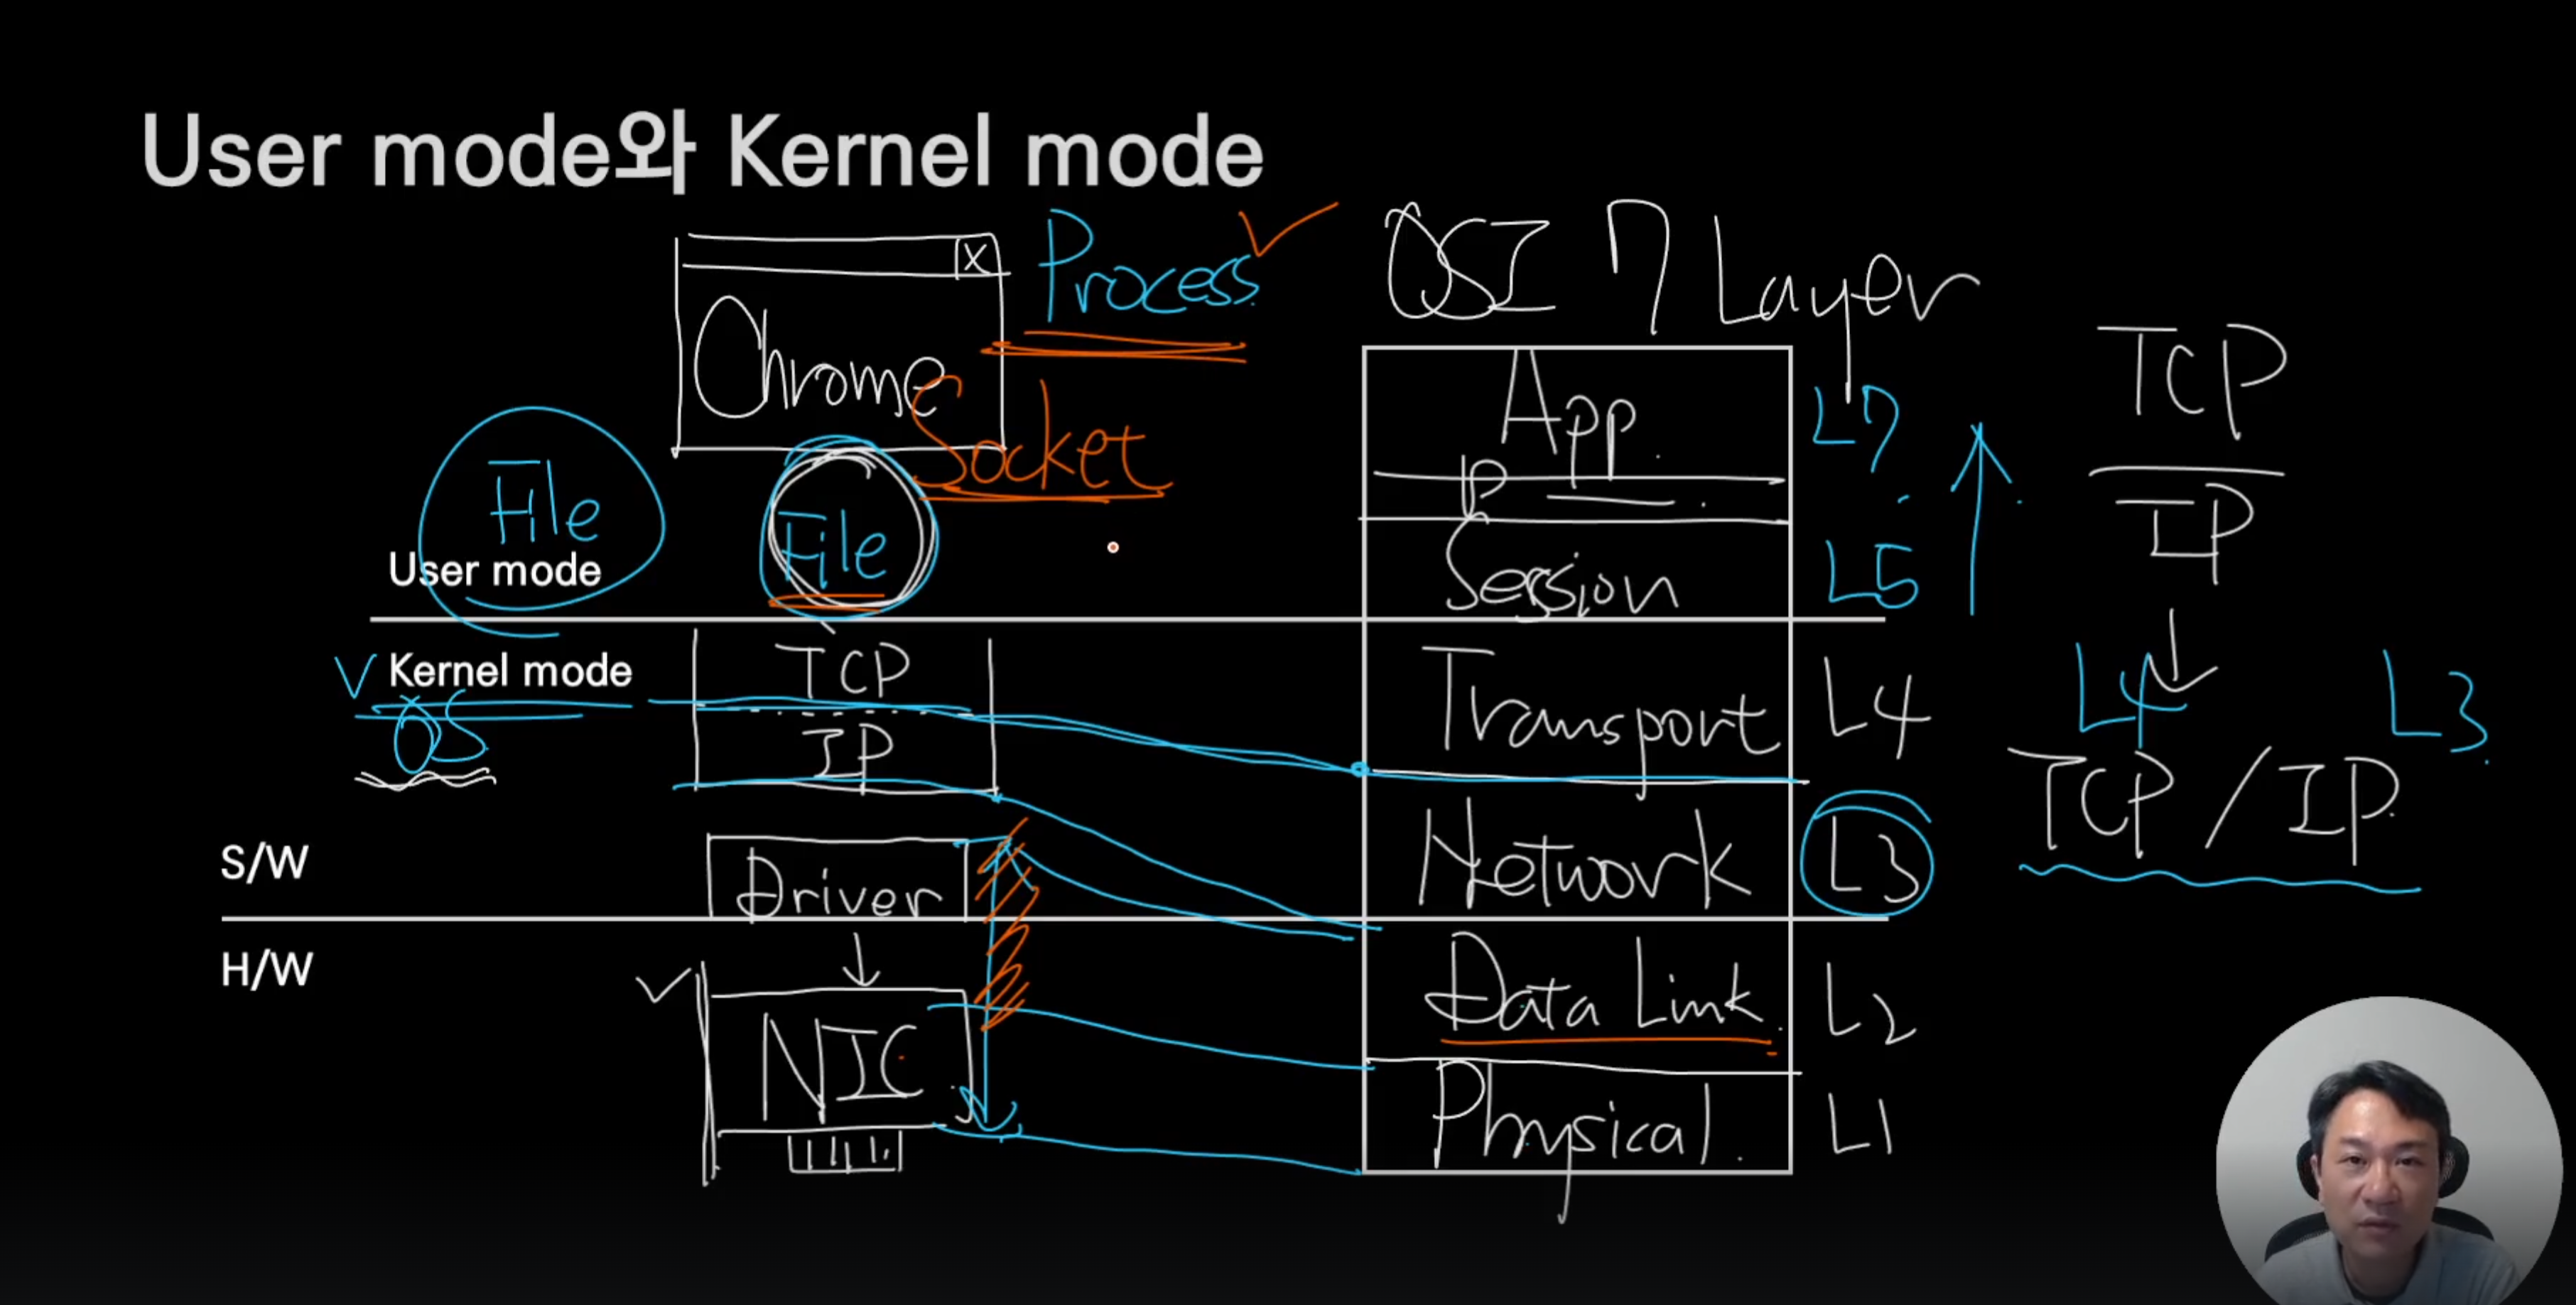 User mode와 Kernel mode
X
Chrome
Process
Socket
File
File
User mode
Kernel mode
OS
TCP
IP
S/W
Driver
H/W
NIC
OSI 7 Layer
App.
L7
P
Session
L5
Transport
L4
Network
L3
Data Link.
L2
Physical.
L1
TCP
IP
L4
L3
TCP/IP